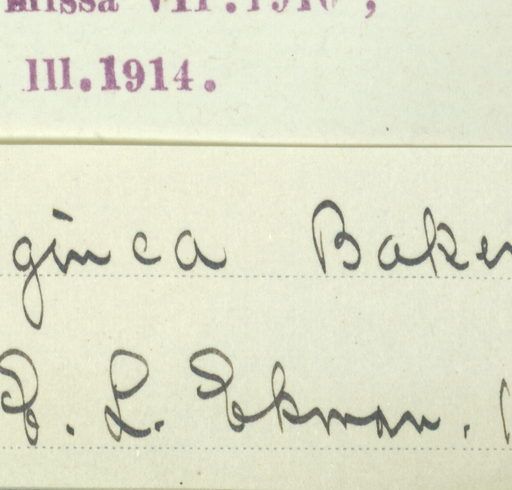 missa VII.1910,
III.1914.
ginea Baker
E. L. Ekman.